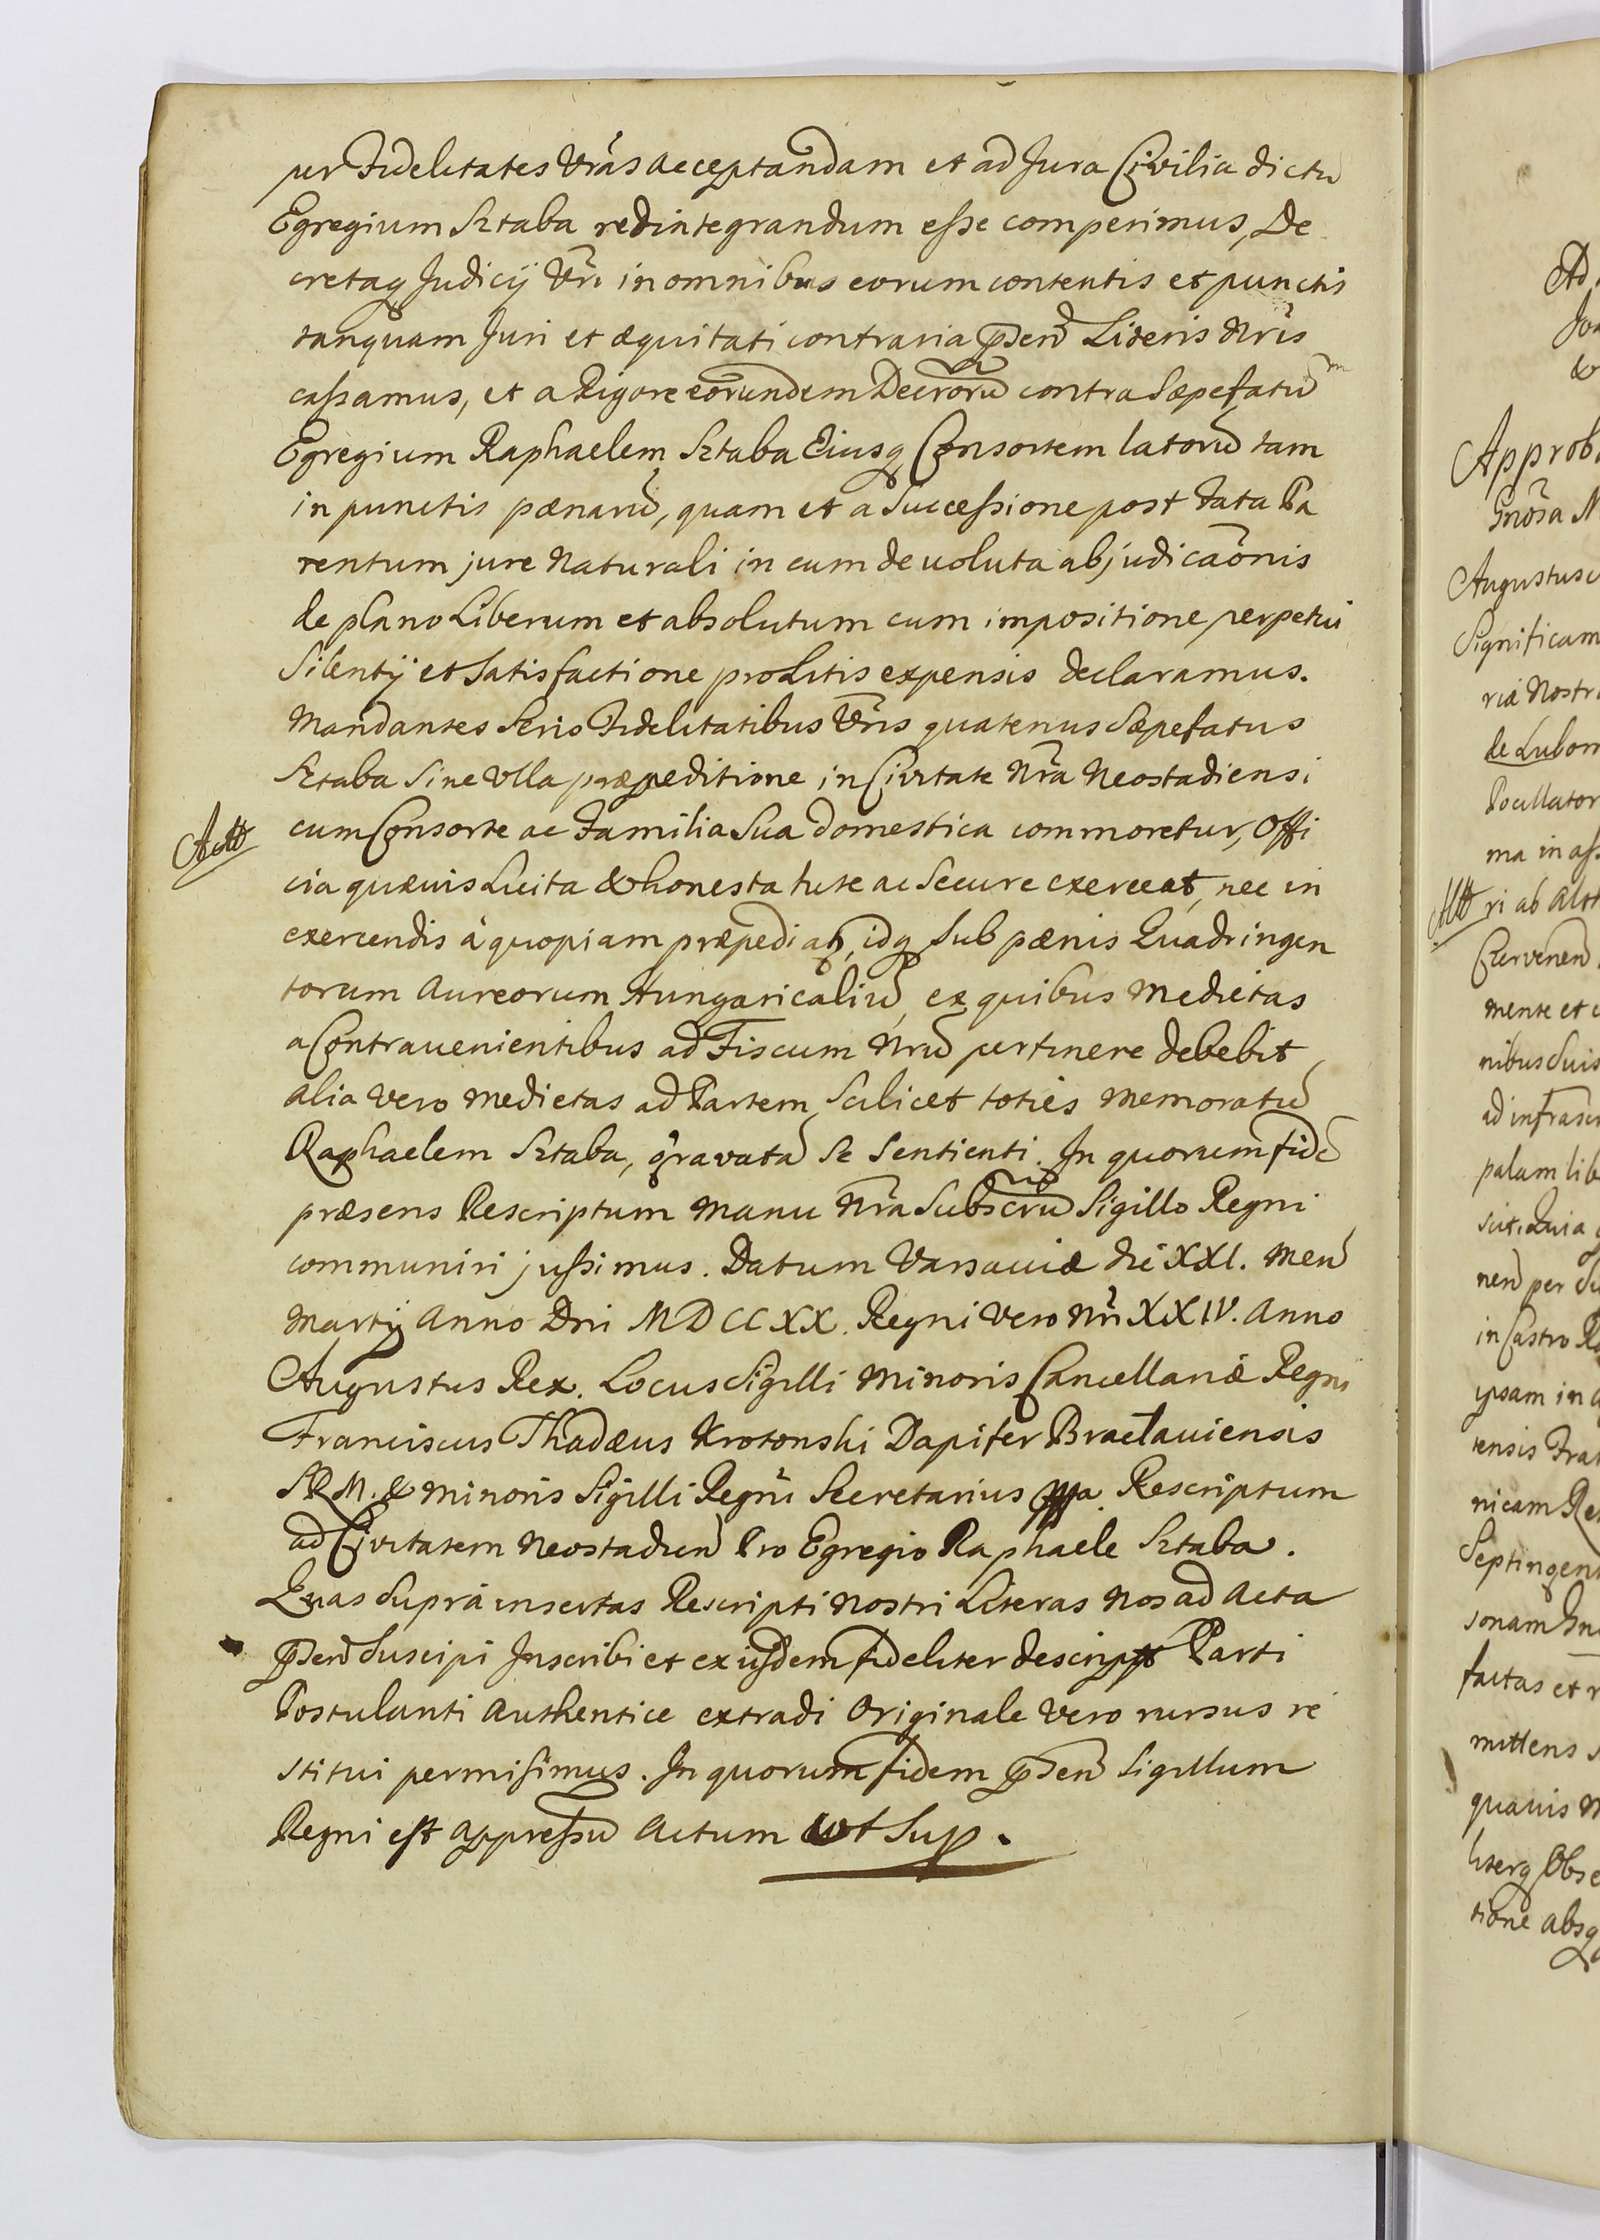 per Fidelitates Vrãs acceptandam et ad Jura Civilia dictũ
Egregium Sztaba redintegrandum esse comperimus, De
cretaq Judicij Vrĩ in omnibus eorum contentis et punctis
tanquam Juri et æquitati contraria p̃sen̄ Literis Nrĩs
cassamus, et a Rigore eorundem Decrorũ contra Sæpefatũm
Egregium Raphaelem Sztaba Eiusq Consortem latorũ tam
in punctis pænarũ, quam et a Successione post Fata Pa
rentum jure Naturali in eum devoluta abjudicaõnis
de plano Liberum et absolutum cum impositione perpetui
Silentij et Satisfactione pro Litis expensis declaramus.
Mandantes Serio Fidelitatibus Vrĩs quatenus Sæpefatus
Sztaba Sine Vlla præpeditione in Civitate Nrã Neostadiensi
cum Consorte ac Familia Sua domestica commoretur, Offi
cia quævis Licita & honesta tute ac Secure exerceat, nec in
exercendis à quopiam præpediat̃, idq Sub pænis Quadringen
torum Aureorum Hungaricaliũ, ex quibus Medietas
a Contravenientibus ad Fiscum Nrũ pertinere debebit
alia vero Medietas ad Partem Scilicet toties Memoratũ
Raphaelem Sztaba, gravatã Se Sentienti. In quorum fidẽ
præsens Rescriptum Manu Nrã Subscrũ Sigillo Regni
communiri jussimus. Datum Varsaviæ die XXI. Men̄
Martij Anno Dni MDCCXX. Regni Vero Nrĩ XXIV. Anno
Augustus Rex. Locus Sigilli Minoris Cancellariæ Regni
Franciscus Thadæus Krotonski Dapifer Braclaviensis
SRM. & Minoris Sigilli Regni Secretarius mpa. Rescriptum
ad Civitatem Neostadien̄ Pro Egregio Raphaele Sztaba.
Quas Suprà insertas Rescripti Nostri Literas Nos ad Acta
p̃sen̄ Suscipi Inscribi et ex ijsdem fideliter descript Parti
Postulanti Authentice extradi Originale Vero rursus re
stitui permisimus. In quorum fidem p̃sen̄ Sigillum
Regni est appressũ Actum ut Sup.
Approb
Gnõsa N
Augustus
Significam
ria Nostr
de Lubom
Pocillator
ma in ass
ri ab Al
mente et
nibus Suis
ad infrasc
palam lib
scit. Quia
nen̄ per Su
in Castro R
ipsam in
tensis Fra
nicam Re
Septingen
sonam In
factas et r
mittens
quavis
literq Obse
tione absq